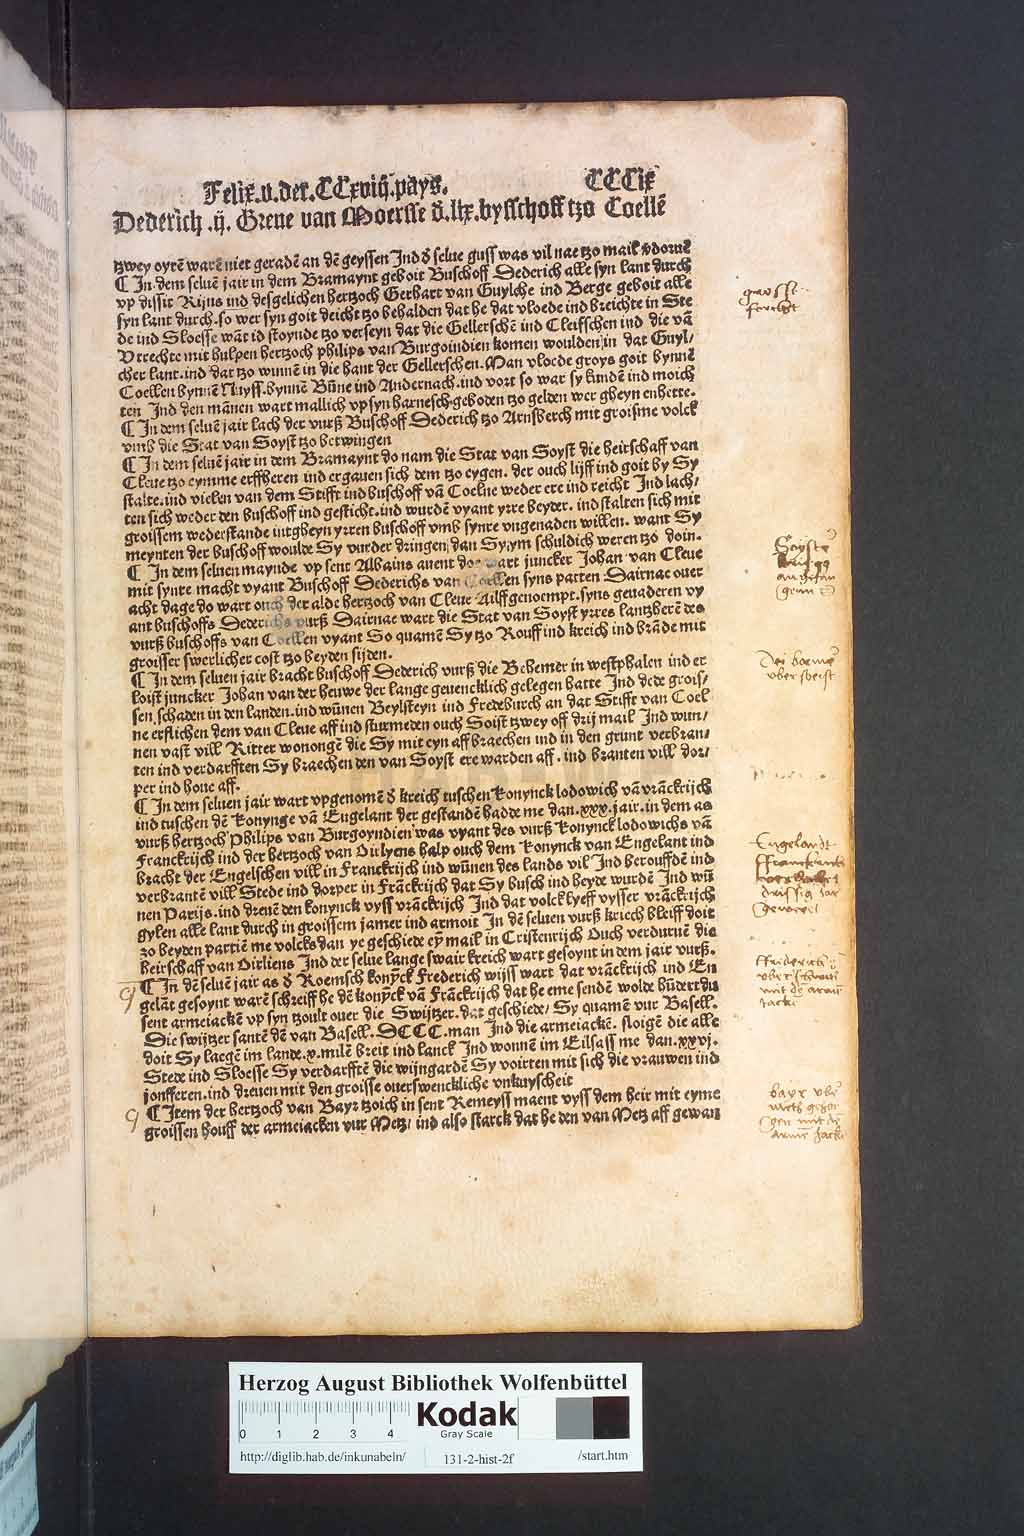 Felix .v. der. CCxviij. pays. CCCix
Dederich .ij. Greue van Moersse d̕. lix. bysschoff tzo Coellē
tzwey oyrē warē niet geradē an dē geyssen Jnd d̕ selue guss was vil nae tzo mail v̕dornē
¶ Jn dem seluē jair in dem Bramaynt geboit Buschoff Dederich alle syn lant durch
vp dissit Rijns ind desgelichen hertzoch Gerhart van Guylche ind Berge geboit alle
syn lant durch. so wer syn goit deicht tzo behalden dat he dat vloede ind breichte in Ste
de ind Sloesse wāt id stoynde tzo verseyn dat die Gellerschē ind Cleiffschen ind die vā
Vtrechte mit hulpen hertzoch philips van Burgoindien komen woulden in dat Guyl/
cher lant. ind dat tzo wunnē in die hant der Gellerschen. Man vloede groys goit bynnē
Coellen bynnē Nuyss. bynnē Būne ind Andernach. ind vort so war sy kundē ind moich
ten Jnd den mānen wart mallich vp syn harnesch geboden tzo gelden wer gheyn enhette.
¶ Jn dem seluē jair lach der vurß Buschoff Dederich tzo Arnsberch mit groisme volck
vmb die Stat van Soyst tzo betwingen
¶ Jn dem seluē jair in dem Bramaynt do nam die Stat van Soyst die heirschaff van
Cleue tzo eymme erffheren ind ergauen sich dem tzo eygen. der ouch lijff ind goit by Sy
stalte. ind vielen van dem Stifft ind buschoff vā Coelne weder ere ind reicht Jnd lach/
ten sich weder den buschoff ind gesticht. ind wurdē vyant yrre beyder. ind stalten sich mit
groissem wederstande intgheyn yrren buschoff vmb synre vngenaden willen. want Sy
meynten der buschoff woulde Sy vurder dringen dan Sy ym schuldich weren tzo doin.
¶ Jn dem seluen maynde vp sent Albains auent do wart juncker Johan van Cleue
mit synre macht vyant Buschoff Dederichs van Coellen syns patten. Dairnae ouer
acht dage do wart ouch der alde hertzoch van Cleue Ailff genoempt. syns geuaderen vy
ant buschoffs Dederichs vurß Dairnae wart die Stat van Soyst yrres lantzherē des
vurß buschoffs van Coellen vyant So quamē Sy tzo Rouff ind kreich ind brāde mit
groisser swerlicher cost tzo beyden sijden.
¶ Jn dem seluen jair bracht buschoff Dederich vurß die Behemer in westphalen ind er
loist juncker Johan van der heuwe der lange geuencklich gelegen hatte Jnd dede grois/
sen schaden in den landen. ind wūnen Beylsteyn ind Fredeburch an dat Stifft van Coel
ne erstlichen dem van Cleue aff ind sturmeden ouch Soist tzwey off drij mail Jnd wun/
nen vast vill Ritter wonongē die Sy mit eyn aff braechen ind in den grunt verbran/
ten ind verdarfften Sy braechen den van Soyst ere warden aff. ind branten vill dor/
per ind houe aff.
¶ Jn dem seluen jair wart vpgenomē d̕ kreich tuschen konynck lodowich vā vrāckrijch
ind tuschen dē konynge vā Engelant der gestandē hadde me dan. xxx. jair. in dem as
vurß hertzoch Philips van Burgoyndien was vyant des vurß konynck lodowichs vā
Franckrijch ind der hertzoch van Oirlyens halp ouch dem konynck van Engelant ind
bracht der Engelschen vill in Franckrijch ind wūnen des lands vil Jnd berouffdē ind
verbrantē vill Stede ind dorper in Frāckrijch dat Sy busch ind heyde wurdē Jnd wū
nen Parijs. ind dreuē den konynck vyss vrāckrijch Jnd dat volck lyeff vysser vrāckrijch
gylen alle lant durch in groissem jamer ind armoit Jn dē seluen vurß kriech bleiff doit
zo beyden partiē me volcks dan ye geschiede eȳ mail in Cristenrijch Ouch verdurnē die
heirschaff van Oirliens Jnd der selue lange swair kreich wart gesoynt in dem jair vurß.
¶ Jn dē seluē jair as d̕ Roemsch konȳck Frederich wijss wart dat vrāckrijch ind En
gelāt gesoynt warē schreiff he dē konȳck vā Frāckrijch dat he eme sendē wolde hūdert du
sent armeiackē vp syn tzoult ouer die Swijtzer. dat geschiede/ Sy quamē vur Basell.
Die swijtzer santē dē van Basell. DCCC. man Jnd die armeiackē. sloigē die alle
doit Sy laegē im lande. x. milē breit ind lanck Jnd wonnē im Eilsass me dan. xxvj.
Stede ind Sloesse Sy verdarfftē die wijngardē Sy voirten mit sich die vrauwen ind
jonfferen. ind dreuen mit den groisse ouerswenckliche vnkuyscheit
¶ Jtem der hertzoch van Bayr tzoich in sent Remeyss maent vyss dem heir mit eyme
groissen houff der armeiacken vur Metz/ ind also starck dat he den van Metz aff gewan
grosse
forcht
Soyste
Engelandt
drissig Jar
Friderich
Herzog August Bibliothek Wolfenbüttel
0 1 2 3 4
Kodak
Gray Scale
http://diglib.hab.de/inkunabeln/ 131-2-hist-2f /start.htm